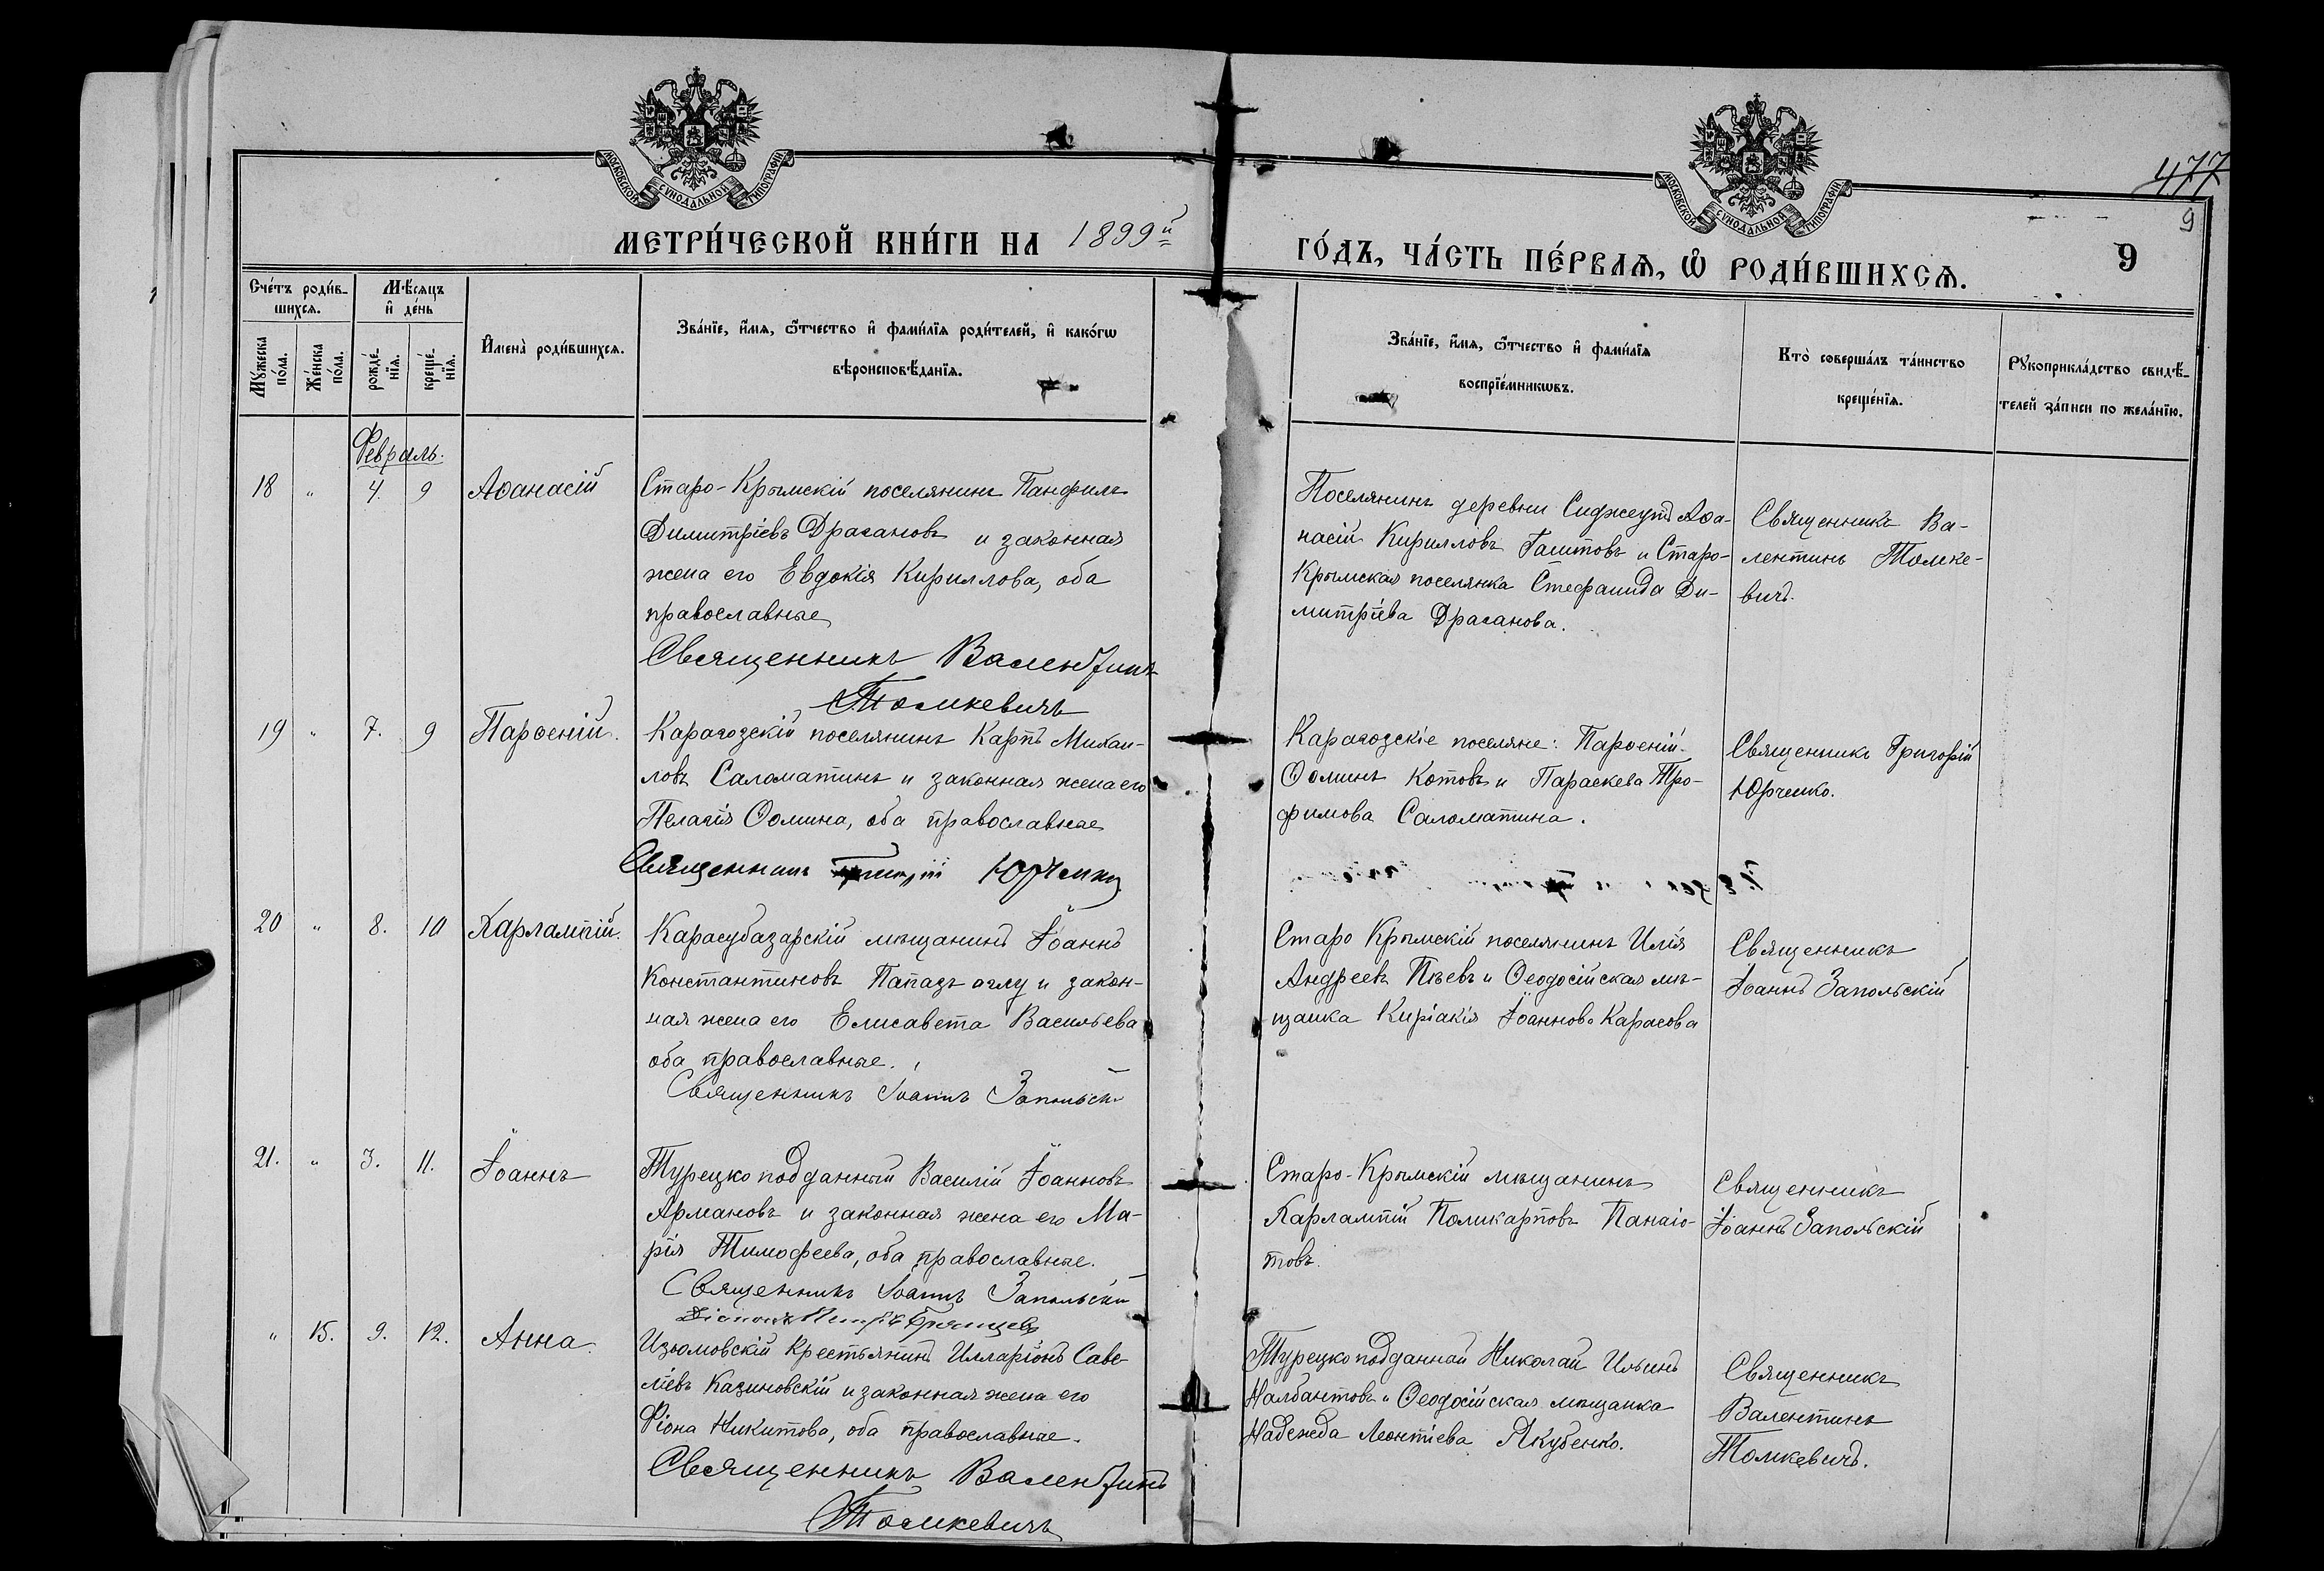 МОСКОВСКОЙ СУНОДАЛЬНОЙ ТИПОГРАФІИ
МОСКОВСКОЙ СУНОДАЛЬНОЙ ТИПОГРАФІИ
477
9
МЕТРИ́ЧЕСКОЙ КНИ́ГИ НА 1899й
ГО́ДЪ, ЧА́СТЬ ПЕ́РВАѦ, Ѡ҆ РОДИ́ВШИХСѦ.
9
Сче́тъ роди́в-
шихсѧ.
Мꙋ́жеска
по́ла.
Же́нска
по́ла.
Мѣ́сѧцъ
и҆ де́нь
рожде́-
нїѧ.
креще́-
нїѧ.
И҆мена̀ роди́вшихсѧ.
Зва́нїе, и҆́мѧ, ѻ҆́тчество и҆ фами́лїѧ роди́телей, и҆ како́гѡ
вѣроисповѣ́данїѧ.
Зва́нїе, и҆́мѧ, ѻ҆́тчество и҆ фами́лїѧ
воспрїе́мникѡвъ.
Кто̀ соверша́лъ та́инство
креще́нїѧ.
Рꙋкоприкла́дство свидѣ́-
телей за́писи по жела́нїю.
Февраль.
18 " 4. 9 Аѳанасій
Старо-Крымскій поселянинъ Панфилъ
Димитріевъ Драгановъ и законная
жена его Евдокія Кириллова, оба
православные
Священникъ Валентинъ
Томкевичъ
Поселянинъ деревни Сиджеутъ Аѳа-
насій Кирилловъ Гаитовъ и Старо-
Крымская поселянка Стефанида Ди-
митріева Драганова.
Священникъ Ва-
лентинъ Томке-
вичъ.
19 " 7. 9 Парѳеній.
Карагозскій поселянинъ Карпъ Михаи-
ловъ Саломатинъ и законная жена его
Пелагія Ѳомина, оба православные
Священникъ Григорій Юрченко
Карагозскіе поселяне: Парѳеній
Ѳоминъ Котовъ и Параскева Тро-
фимова Саломатина.
Священникъ Григорій
Юрченко.
20 " 8. 10 Харлампій.
Карасубазарскій мѣщанинъ Іоаннъ
Константиновъ Папазъ оглу и закон-
ная жена его Елисавета Васильева
оба православные.
Священникъ Іоаннъ Запольскій
Старо Крымскій поселянинъ Илія
Андреевъ и Ѳеодосійская мѣ-
щанка Киріакія Іоаннова Карасова
Священникъ
Іоаннъ Запольскій
21. " 3. 11. Іоаннъ
Турецко подданный Василій Іоанновъ
Армановъ и законная жена его Ма-
рія Тимофеева, оба православные.
Священникъ Іоаннъ Запольскій
Діаконъ
Старо-Крымскій мѣщанинъ
Харлампій Поликарповъ Панаіо-
товъ.
Священникъ
Іоаннъ Запольскій
" 15. 9. 12. Анна.
Изюмовскій Крестьянинъ Илларіонъ Саве-
ліевъ Казиновскій и законная жена его
Фіона Никитова, оба православные.
Священникъ Валентинъ
Томкевичъ
Турецко подданный Николай Ильинъ
Налбантовъ и Ѳеодосійская мѣщанка
Надежда Леонтіева Якубенко.
Священникъ
Валентинъ
Томкевичъ.